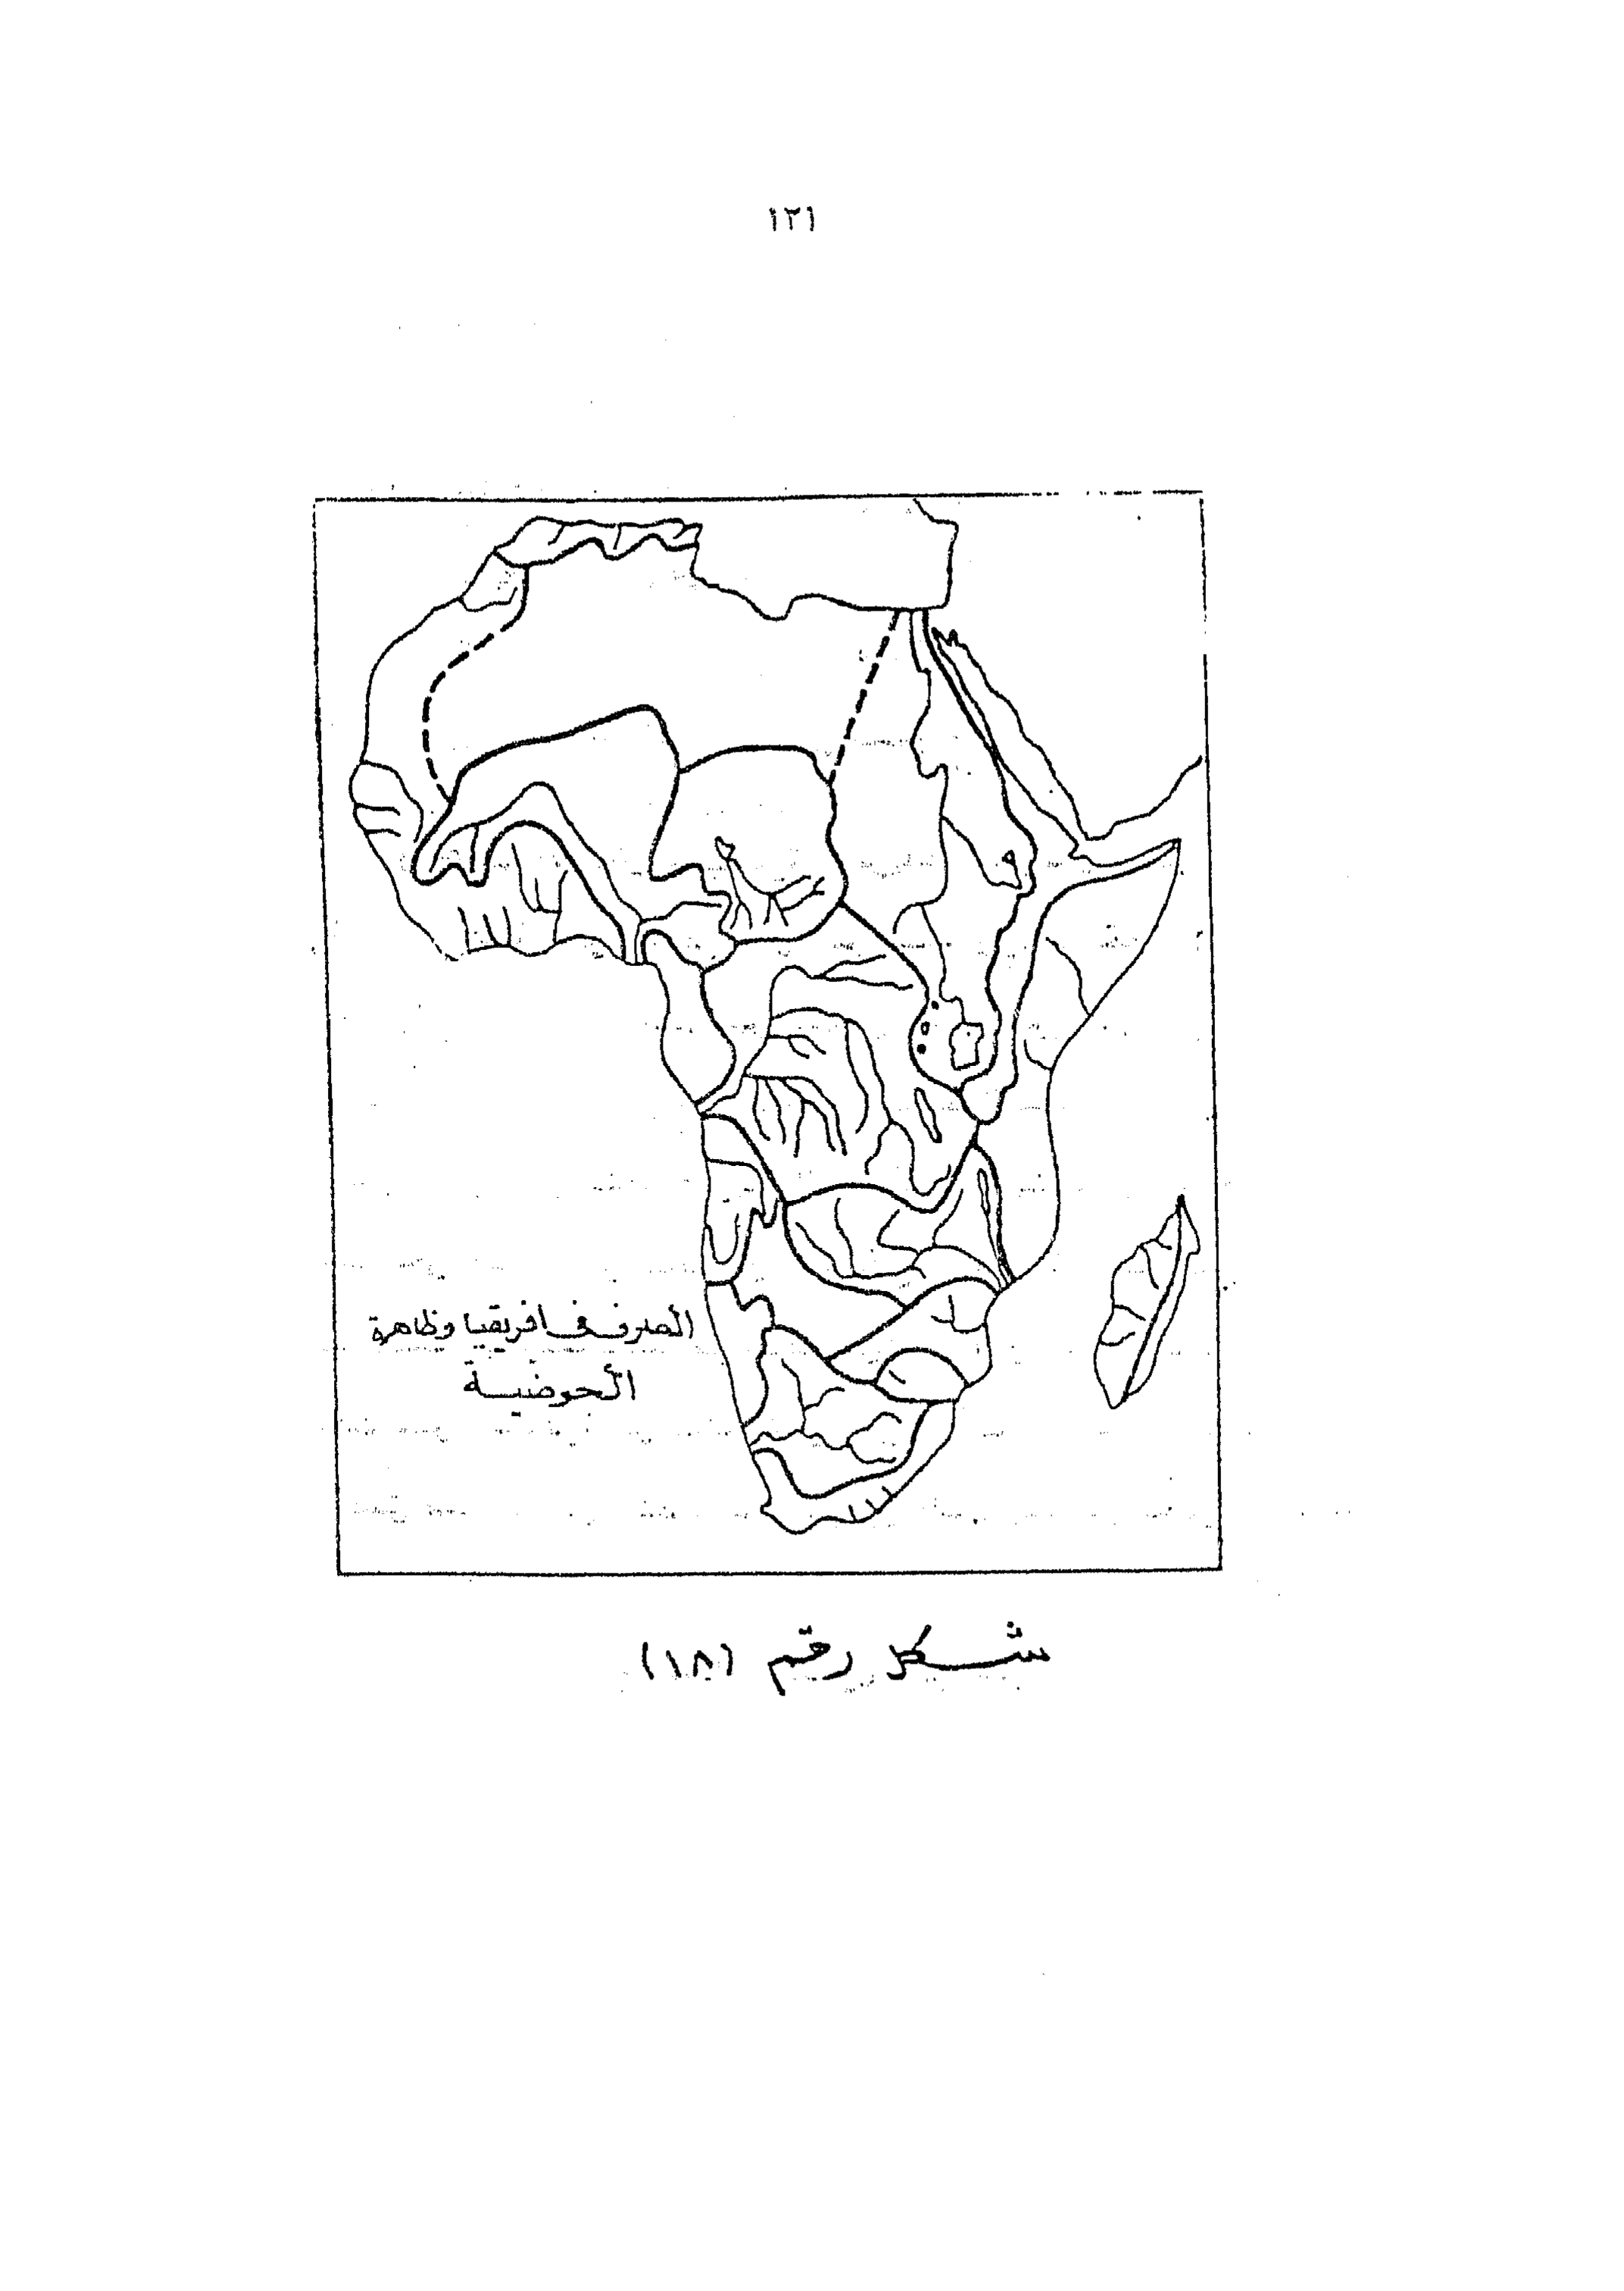 ١٢١
الصرف فى افريقيا وظاهرة
الحوضية
شكل رقم (١٨)